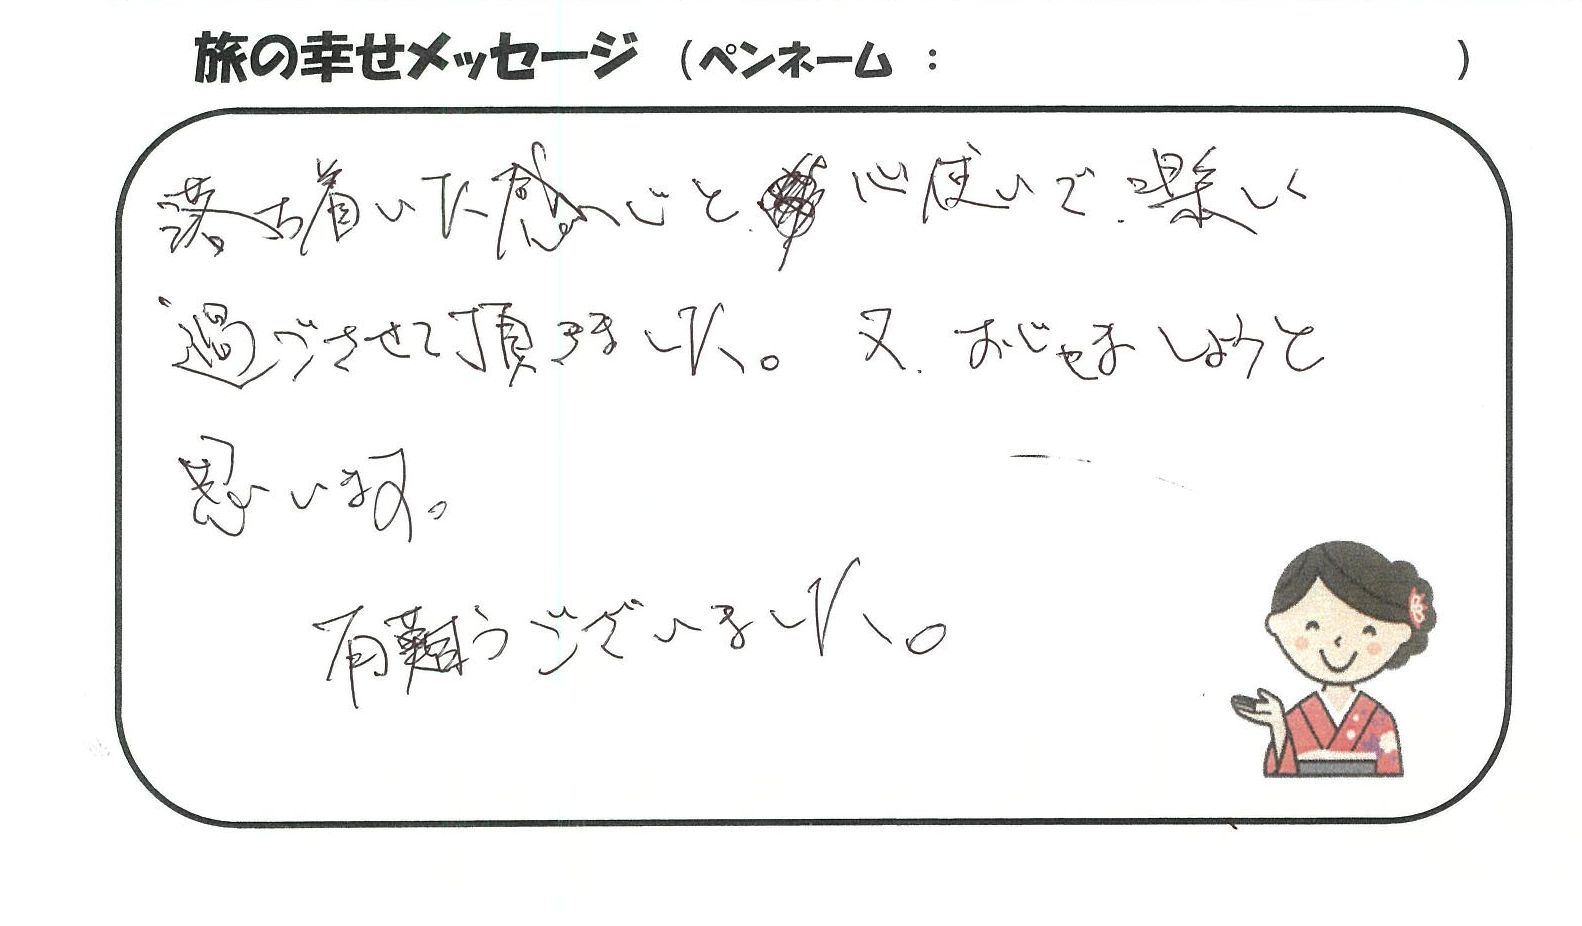 旅の幸せメッセージ （ペンネーム ： ）
落ち着いた感じと、心使いで、楽しく
過ごさせて頂きました。又、おじゃましようと
思います。
有難うございました。